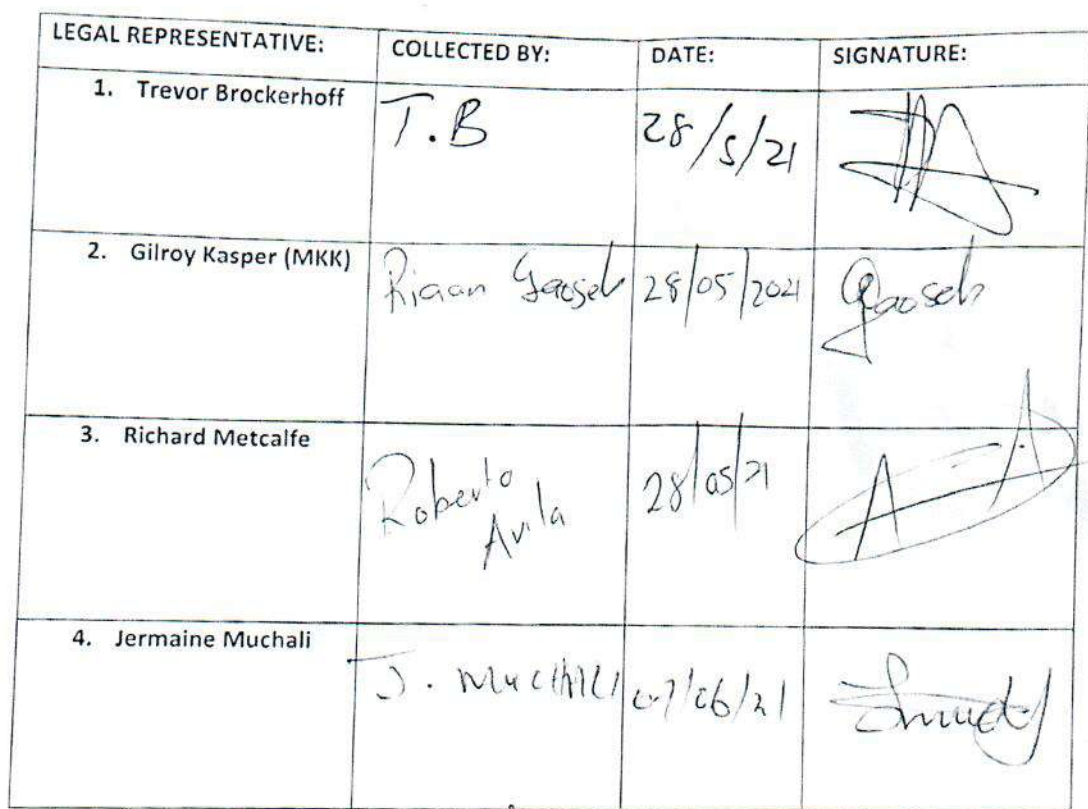 LEGAL REPRESENTATIVE: COLLECTED BY: DATE: SIGNATURE:
1. Trevor Brockerhoff T.B 28/5/21
2. Gilroy Kasper (MKK) Riaan Gaoseb 28/05/2021 Gaoseb
3. Richard Metcalfe Roberto Avila 28/05/21
4. Jermaine Muchali J. MUCHALI 07/06/21